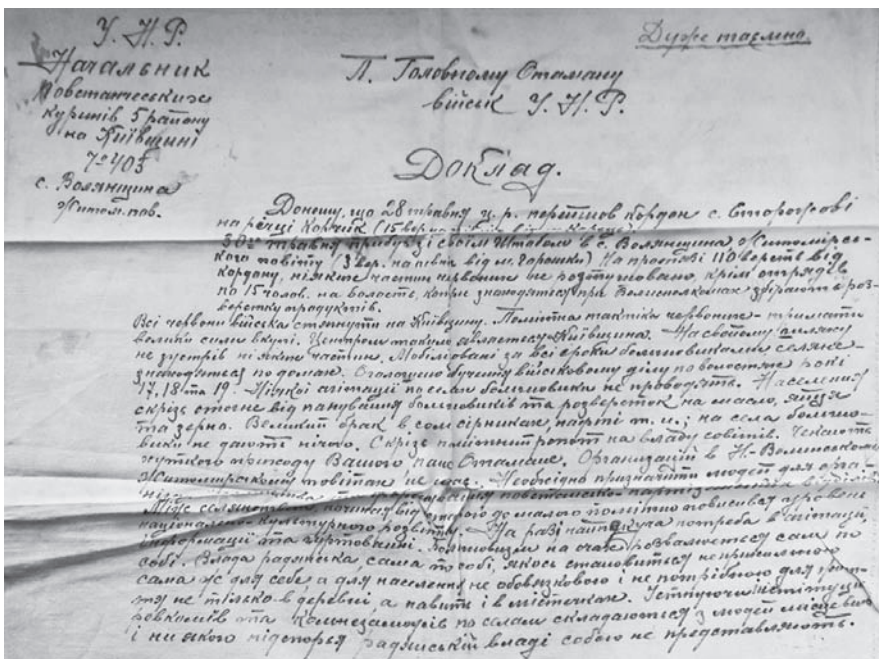 У. Н. Р.
Начальник
Повстанческих
куринів 5 району
на Київщині
№ 403
с. Волянщина
Житом. пов.
Дуже таємно.
П. Головному Отаману
військ У. Н. Р.
Доклад.
Доношу, що 28 травня ц. р. перейшов кордон с. Сторожові
на річці Корчик (15 вер.
30го травня прибув зі своїм Штабом в с. Волянщина, Житомірсь-
кого повіту (3 вер. на північ від м. Горошки) На протязі 110 верст від
кордону, ніяких частин червоних не розташовано, крім отрядів
по 15 чолов. на волость, котрі знаходяться при Волисполкомах збірають роз-
верстку продуктів.
Всі червоні війська стягнуті на Київщину. Помітна тактика червоних - тримати
великі сили вкупі. Центром таким являється Київщина. На своєму шляху
не зустрів ніяких частин. Мобілізовані за всі строки большовиками селяне -
знаходяться по домам. Оголошено бучення військовому ділу по волостям років
17, 18 та 19. Ніякої агітації по селам большовики не проводять. Населення
скрізь стогне від панування большовиків та розверсток на масло, яйця
та зерна. Великий брак в солі, сірниках, нафті т. и.; на села большо-
вики не дають нічого. Скрізь помітний ропот на владу совітів. Чекають
хуткого приходу Вашого пане Отамане. Організацій в Н-Волинському
Житомирському повітах не має. Необхідно призначити людей для орга-
Між селянством, починая від старого до малого помітно повисився уровень
національно-культурного розвитку. На разі пануюча потреба в агітації,
інформації та гуртованні. Большовизм на очах розвалюється сам по
собі. Влада радянська, сама по собі, якось становиться неприємною
сама ж для себе а для населення не обовязкового і не потрібною для жит-
тя не тільки в деревні а навіть і в містечках. Істнуючи інституції
ревкомів та комнезаможів по селам складаються з людей місцевих
і ни якого підспоря радянській владі собою не представляють.